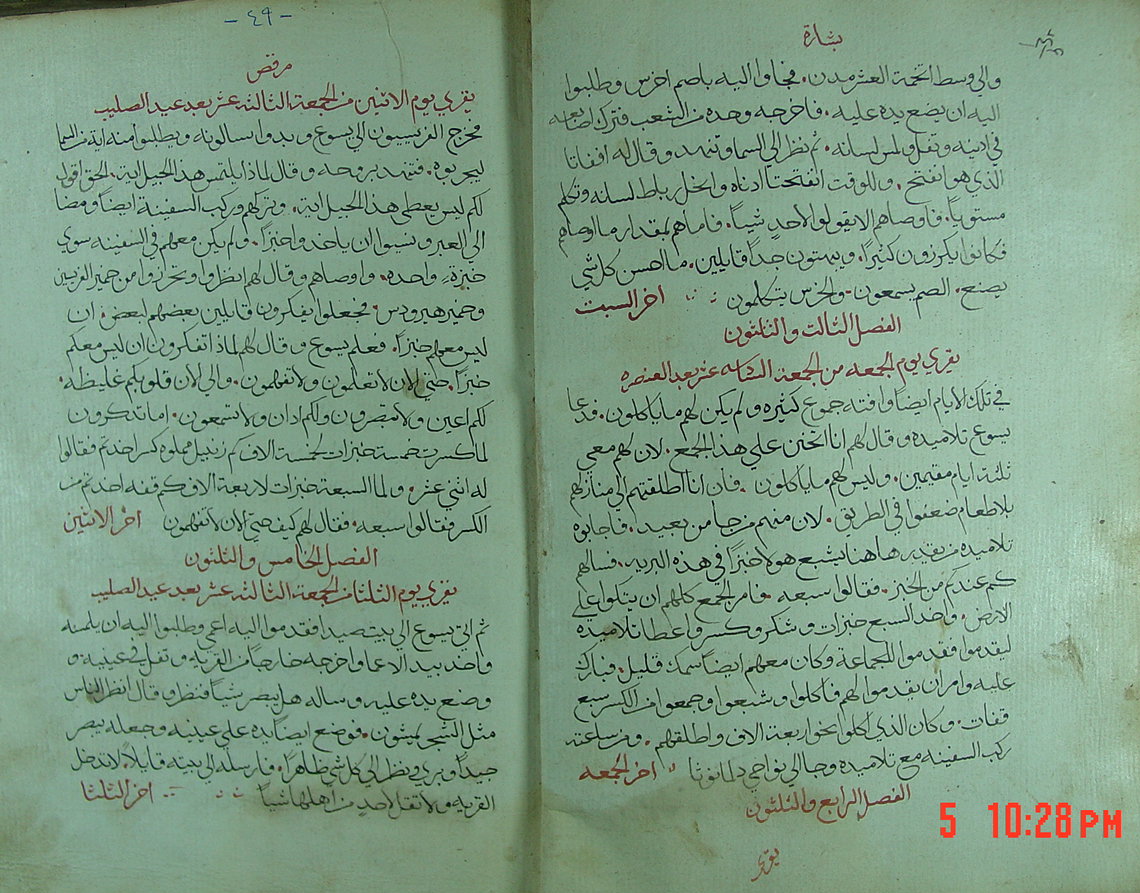 بشارة
والي وسط اتخمة العشر مدن. فجاوا اليه باصم اخرس وطلبوا
اليه ان يضع يده عليه. فاخرجه وحده من الشعب وترك اصابعه
في ادنيه وتفل ولمس لسانه. ثم نظر الي السما وتنهد وقال له افقاتا
الذي هو انفتح. وللوقت انفتحتا ادناه وانحل رباط لسانه وتكلم
مستقيماً. فاوصاهم الا يقولوا لاحدٍ شياً. فاما هم بمقدار ما اوصاهم
فكانوا يكرزون كثيراً. ويبهتون جداً قايلين. ما احسن كل شي
يصنع. الصم يسمعون. والخرس يتكلمون اخر السبت
الفصل الثالث والثلثون
يقري يوم الجمعه من الجمعة السادسه عشر بعد العنصره
في تلك الايام ايضاً وافته جموع كثيره ولم يكن لهم ما ياكلون. فدعا
يسوع تلاميده وقال لهم انا اتحنن علي هذا الجمع. لان لهم معي
ثلثة ايام مقيمين. وليس لهم ما ياكلون. فان انا اطلقتهم الي منازلهم
بلا طعام ضعفوا في الطريق. لان منهم من جا من بعيد. فاجابوه
تلاميده من يقدر هاهنا يشبع هولا خبزاً في هذه البريه. فسالهم
كم عندكم من الخبز. فقالوا سبعه. فامر الجمع كلهم ان يتكوا علي
الارض. واخد السبع خبزات وشكر وكسر واعطا تلاميده
ليقدموا فقدموا للجماعة وكان معهم ايضاً سمك قليل. فبارك
عليه وامر ان يقدموا لهم فاكلوا وشبعوا وجمعوا من الكسر سبع
قفات. وكان الذي اكلوا نحو اربعة الاف واطلقهم. ومن ساعته
ركب السفينه مع تلاميده وجا الي نواحي دلمانوثا اخر الجمعه
الفصل الرابع والثلثون
يقري
- ٤٩ -
مرقص
يقري يوم الاثنين من الجمعة الثالثه عشر بعد عيد الصليب
فخرج الفريسيون الي يسوع وبدوا يسالونه ويطلبوا منه اية من السما
ليجربوه. فتنهد بروحه وقال لماذا يلتمس هذا الجيل اية. الحق اقول
لكم ليس يعطي هذا الجيل اية. وتركهم وركب السفينة ايضاً ومضا
الي العبر ونسيوا ان ياخدوا خبزاً. ولم يكن معهم في السفينه سوي
خبزةٍ واحده. واوصاهم وقال لهم انظروا وتحرزوا من خمير الفريسين
وخمير هيرودس. فجعلوا يفكرون قايلين بعضهم لبعض. ان
ليس معهم خبزاً. فعلم يسوع وقال لهم لماذا تفكرون ان ليس معكم
خبزاً. حتي الان لا تعلمون ولا تفهمون. والي الان قلوبكم غليظه.
لكم اعين ولا تبصرون ولكم ادان ولا تسمعون. اما تدكرون
لما كسرت خمسة خبزات لخمسة الاف كم زنبيل مملوه كسر اخدتم فقالوا
له اثني عشر. ولما السبعة خبزات لاربعة الاف كم قفه اخدتم من
الكسر فقالوا سبعه. فقال لهم كيف حتي الان لا تفهمون اخر الاثنين
الفصل الخامس والثلثون
يقري يوم الثلثا من الجمعة الثالثه عشر بعد عيد الصليب
ثم اتي يسوع الي بيت صيدا فقدموا اليه اعمي وطلبوا اليه ان يلمسه
واخد بيد الاعما واخرجه خارجاً من القريه وتفل في عينيه و
وضع يده عليه. وساله هل يبصر شياً فنظر وقال انظر الناس
مثل الشجر يمشون. فوضع ايضاً يده علي عينيه وجعله يبصر
جيداً وبري ونظر الي كل شي ظاهراً. فارسله الي بيته قايلاً. لا تدخل
القريه ولا تقل لاحدٍ من اهلها شياً اخر الثلثا
5 10:28 PM